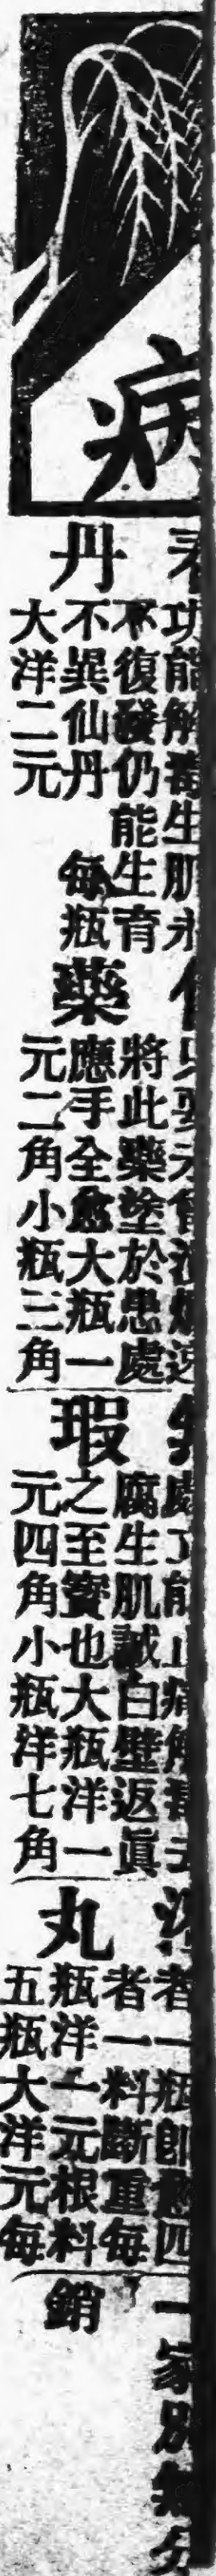 病
丹
功能解毒生肌永
不復發仍能生育
不異仙丹 每瓶
大洋二元
藥
將此藥塗於患處
應手全愈大瓶一
元二角小瓶三角
瑕
處功能止痛解毒去
腐生肌誠白璧返眞
之至寶也大瓶洋一
元四角小瓶洋七角
丸
者一瓶即愈四
者一料斷重每
瓶洋一元根料
五瓶大洋元每
一家別無分
銷